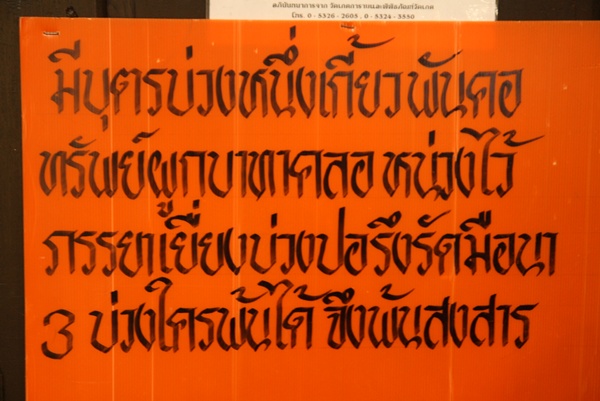 โทร. 0-5326-2605, 0-5324-3550
มีบุตรบ่วงหนึ่งเกี้ยวพันคอ
ทรัพย์ผูกบาทาคลอ หน่วงไว้
ภรรยาเยี่ยงบ่วงปอรึงรัดมือนา
3 บ่วงใครพ้นได้ จึงพ้นสงสาร